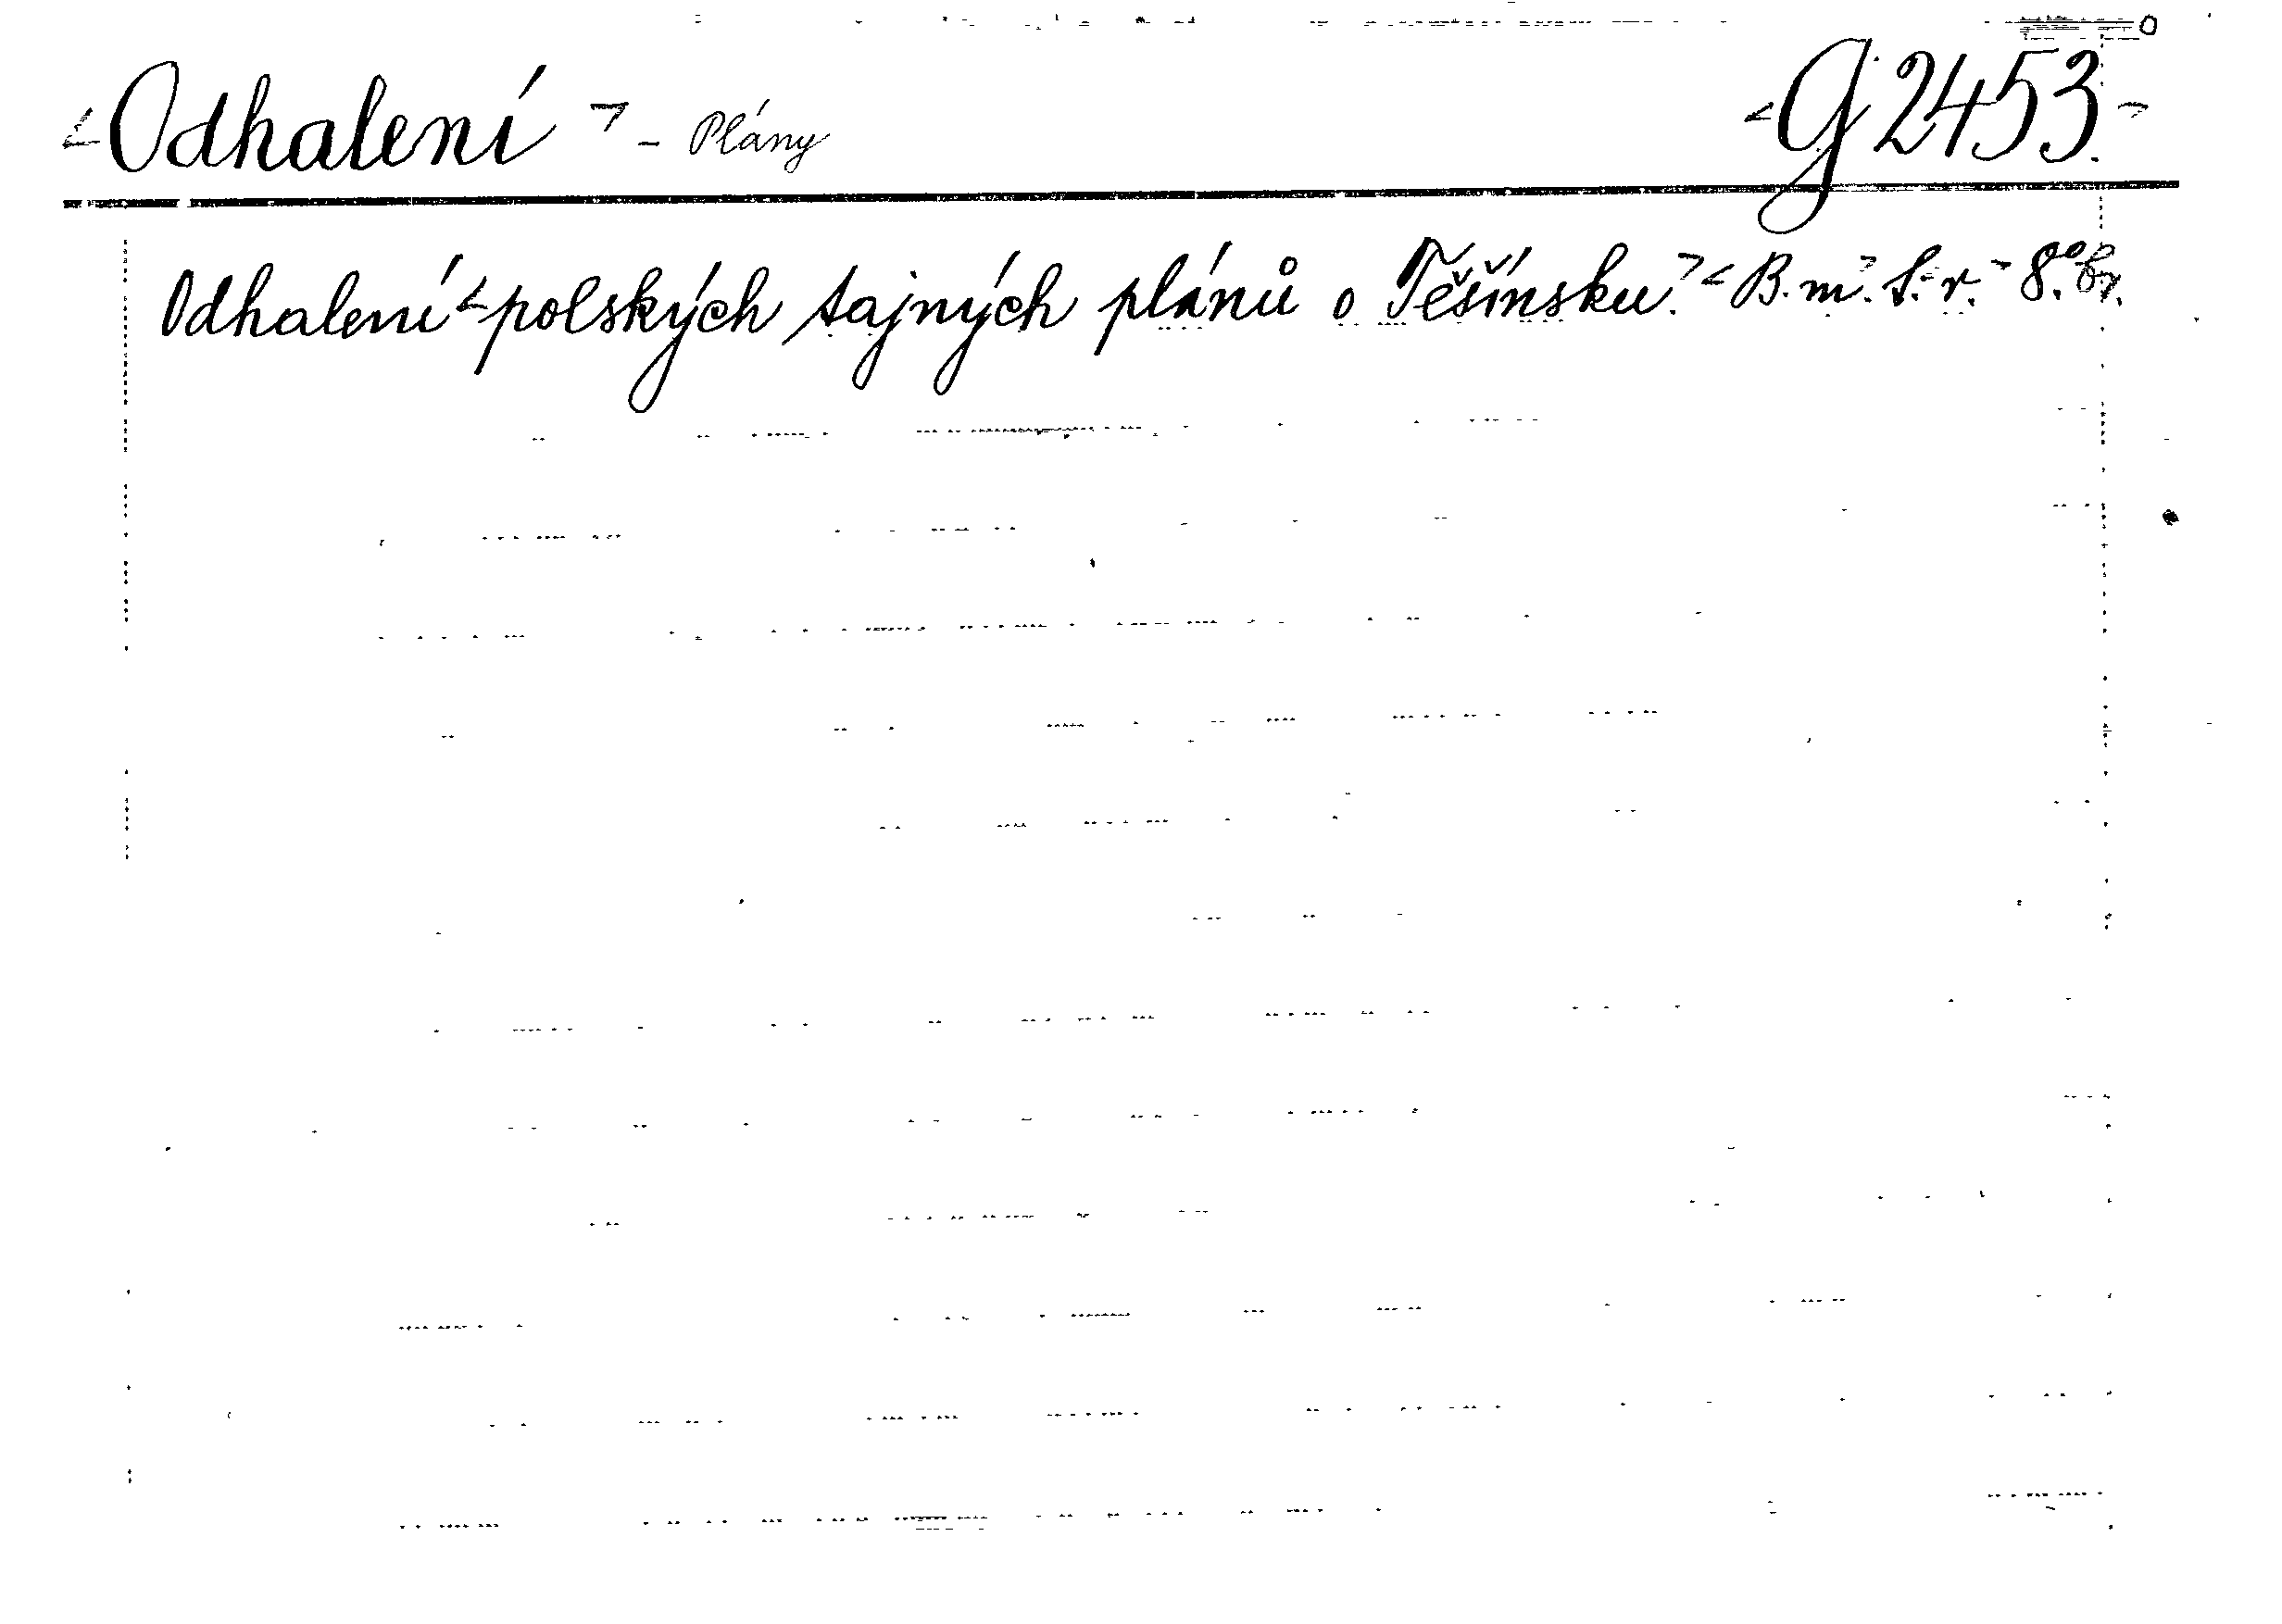 <Odhalení> - Plány <G 2453.>
Odhalení <polských tajných plánů o Těšínsku.> <B. m.> S. r. 8.° br.